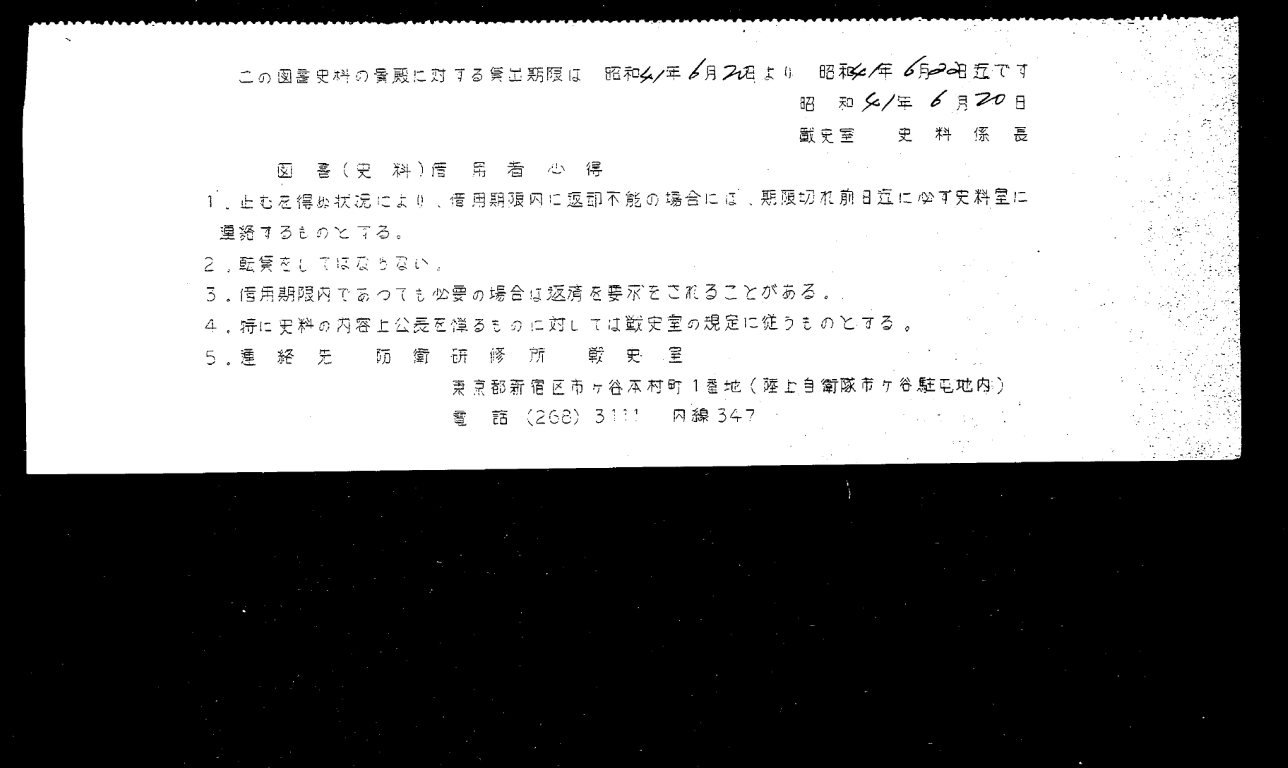 この図書史料の貴殿に対する貸出期限は 昭和41年6月20日より 昭和41年6月22日迄です
昭 和41年 6月20日
戦史室 史 料 係 長
図 書(史 料)借 用 者 心 得
1.止むを得ぬ状況により、借用期限内に返却不能の場合には、期限切れ前日迄に必ず史料室に
連絡するものとする。
2.転貸をしてはならない。
3.借用期限内であつても必要の場合は返済を要求をされることがある。
4.特に史料の内容上公表を憚るものに対しては戦史室の規定に従うものとする。
5.連 絡 先 防 衛 研 修 所 戦 史 室
東京都新宿区市ヶ谷本村町1番地(陸上自衛隊市ヶ谷駐屯地内)
電 話 (268) 3111 内線347